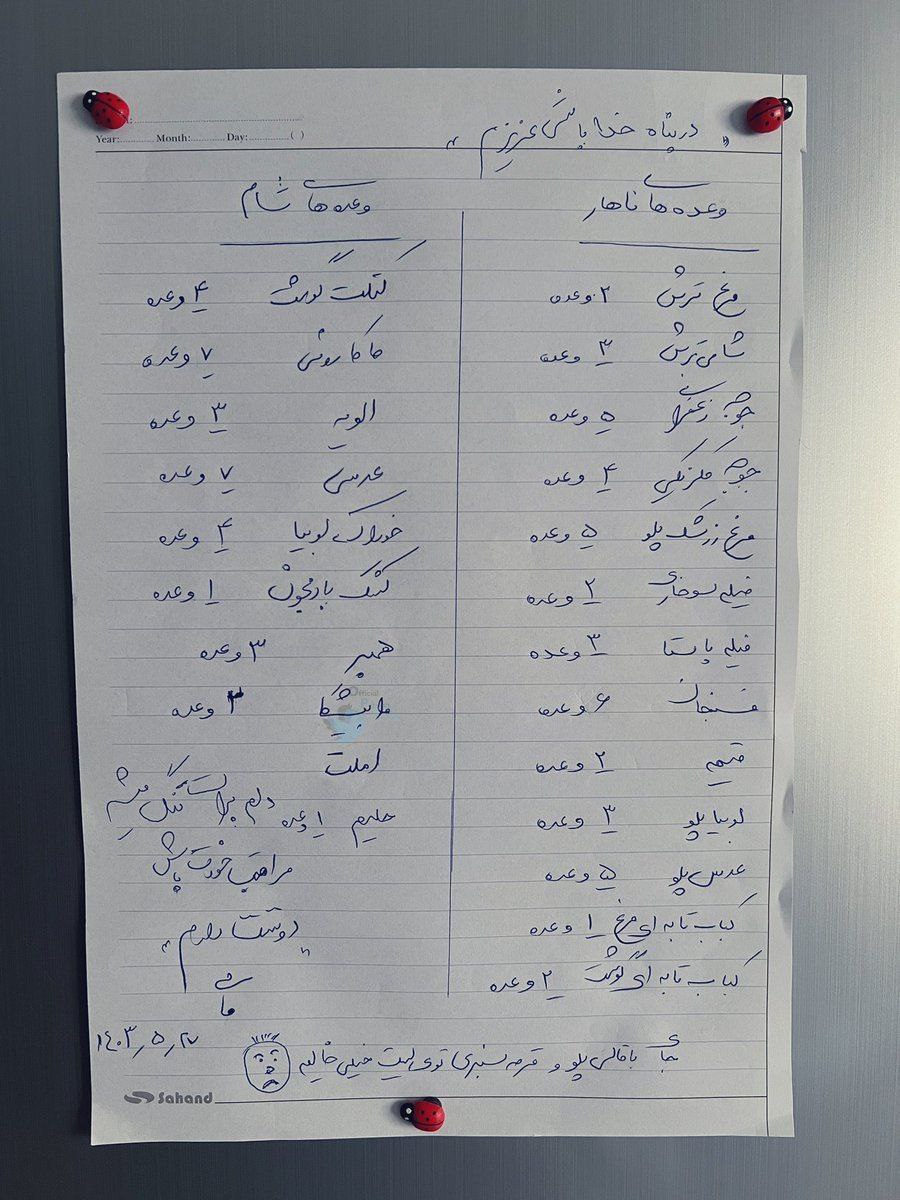 Year:........... Month:........... Day:............( )
"در پناه خدا باشی عزیزم"
وعده های ناهار
مرغ ترش ۲ وعده
شامی ترش ۳ وعده
جوجه زعفرانی ۵ وعده
جوجه مکزیکی ۴ وعده
مرغ زرشک پلو ۵ وعده
فیله سوخاری ۲ وعده
فیله پاستا ۳ وعده
فسنجان ۶ وعده
قیمه ۲ وعده
لوبیا پلو ۳ وعده
عدس پلو ۵ وعده
کباب تابه ای مرغ ۱ وعده
کباب تابه ای گوشت ۲ وعده
وعده های شام
کتلت گوشت ۴ وعده
ماکارونی ۷ وعده
الویه ۳ وعده
عدسی ۷ وعده
خوراک لوبیا ۴ وعده
کشک بادمجون ۱ وعده
همبر ۳ وعده
۳ وعده
املت
حلیم ۱ وعده
دلم برات تنگ میشه
مراقب خودت باش
"دوستت دارم"
جای باقالی پلو و قرمه سبزی توی لیست خیلی خالیه
۱۴۰۳٫۵٫۲۷
Sahand
Official